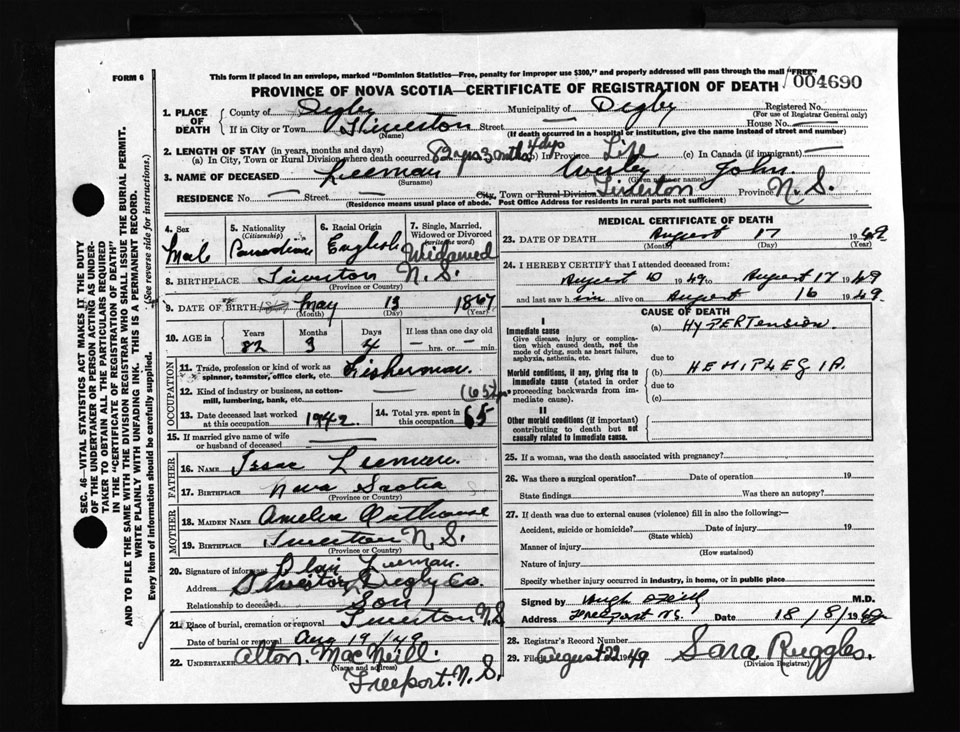 FORM 6
This form if placed in an envelope, marked "Dominion Statistics—Free, penalty for improper use $300," and properly addressed will pass through the mail "FREE"
004690
PROVINCE OF NOVA SCOTIA—CERTIFICATE OF REGISTRATION OF DEATH
1. PLACE OF DEATH
County of Digby Municipality of Digby Registered No.
(For use of Registrar General only)
If in City or Town Tiverton Street — House No. —
(Name) (If death occurred in a hospital or institution, give the name instead of street and number)
2. LENGTH OF STAY (in years, months and days)
(a) In City, Town or Rural Division where death occurred 82 yrs 3 months 4 dys (b) In Province Life (c) In Canada (if immigrant) —
3. NAME OF DECEASED Leeman Wesley John
(Surname) (Given name or names)
RESIDENCE No. — Street — City, Town or Rural Division Tiverton Province N.S.
(Residence means usual place of abode. Post Office Address for residents in rural parts not sufficient)
4. Sex
Male
5. Nationality
(Citizenship)
Canadian
6. Racial Origin
English
7. Single, Married, Widowed or Divorced
(write the word)
Widowed
8. BIRTHPLACE Tiverton N.S.
(Province or Country)
9. DATE OF BIRTH May 13 1867
(Month) (Day) (Year)
10. AGE in
Years Months Days If less than one day old
82 3 4 — hrs. or — min.
OCCUPATION
11. Trade, profession or kind of work as spinner, teamster, office clerk, etc. Fisherman
12. Kind of industry or business, as cotton-mill, lumbering, bank, etc. (65)
13. Date deceased last worked at this occupation 1942
14. Total yrs. spent in this occupation 65
15. If married give name of wife or husband of deceased —
FATHER
16. NAME Isaac Leeman
17. BIRTHPLACE Nova Scotia
(Province or Country)
MOTHER
18. MAIDEN NAME Amelia Outhouse
19. BIRTHPLACE Tiverton N.S.
(Province or Country)
20. Signature of informant Blair Leeman
Address Tiverton, Digby Co.
Relationship to deceased Son
21. Place of burial, cremation or removal Tiverton N.S
Date of burial or removal Aug 19/49
22. Undertaker Alton. MacNeill.
(Name and address)
Freeport. N.S.
MEDICAL CERTIFICATE OF DEATH
23. DATE OF DEATH August 17 1949
(Month) (Day) (Year)
24. I HEREBY CERTIFY that I attended deceased from:
August 10 1949 to August 17 1949
and last saw him alive on August 16 1949
CAUSE OF DEATH
I
Immediate cause
Give disease, injury or complication which caused death, not the mode of dying, such as heart failure, asphyxia, asthenia, etc.
(a) HYPERTension.
due to
Morbid conditions, if any, giving rise to immediate cause (stated in order proceeding backwards from immediate cause).
(b) HEMIPLEGIA.
due to
(c)
II
Other morbid conditions (if important) contributing to death but not causally related to immediate cause.
25. If a woman, was the death associated with pregnancy?
26. Was there a surgical operation? Date of operation 19
State findings Was there an autopsy?
27. If death was due to external causes (violence) fill in also the following:—
Accident, suicide or homicide? Date of injury 19
(State which)
Manner of injury
(How sustained)
Nature of injury
Specify whether injury occurred in industry, in home, or in public place
Signed by Hugh M.D.
Address Freeport N.S. Date 18/8/1949
28. Registrar's Record Number
29. Filed August 22 1949 Sara Ruggles.
(Division Registrar)
SEC. 46—VITAL STATISTICS ACT MAKES IT THE DUTY
OF THE UNDERTAKER OR PERSON ACTING AS UNDER-
TAKER TO OBTAIN ALL THE PARTICULARS REQUIRED
IN THE "CERTIFICATE OF REGISTRATION OF DEATH"
AND TO FILE THE SAME WITH THE DIVISION REGISTRAR WHO SHALL ISSUE THE BURIAL PERMIT.
WRITE PLAINLY WITH UNFADING INK. THIS IS A PERMANENT RECORD.
Every item of information should be carefully supplied. (See reverse side for instructions.)